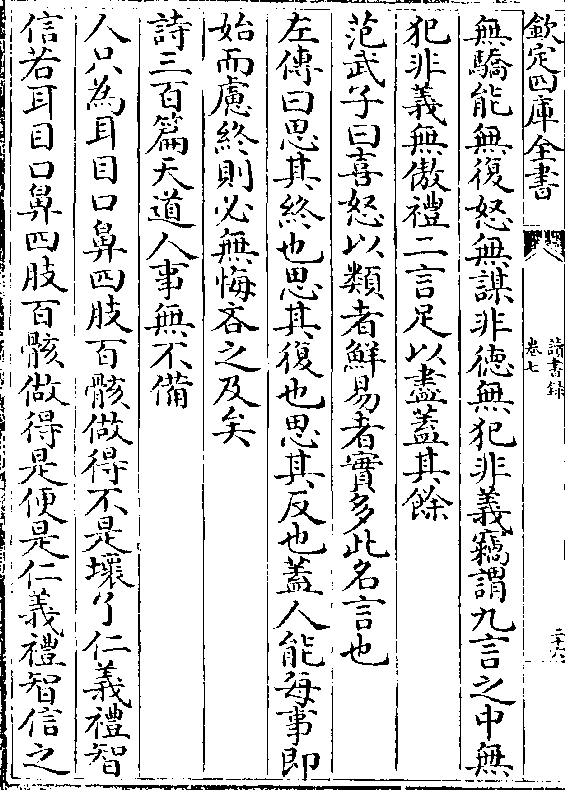 欽定四庫全書
讀書録
卷七
二十六
無驕能無復怒無謀非徳無犯非義竊謂九言之中無
犯非義無傲禮二言足以盡蓋其餘
范武子曰喜怒以類者鮮易者實多此名言也
左傳曰思其終也思其復也思其反也蓋人能每事即
始而慮終則必無悔吝之及矣
詩三百篇天道人事無不備
人只為耳目口鼻四肢百骸做得不是壞了仁義禮智
信若耳目口鼻四肢百骸做得是便是仁義禮智信之